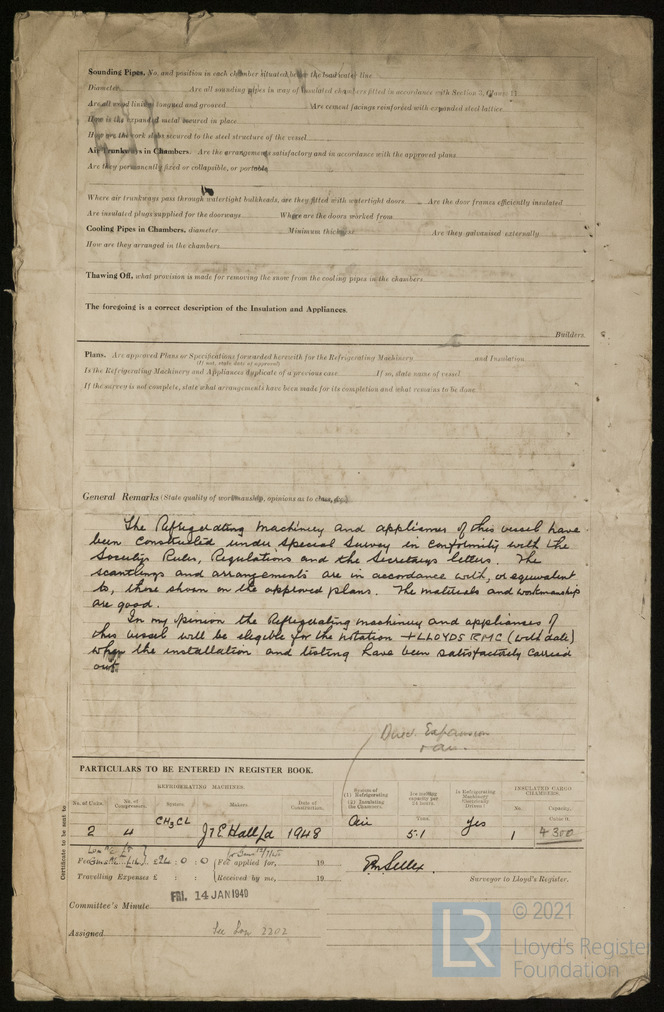 Sounding Pipes. No. and position in each chamber situated below the load water line
Diameter Are all sounding pipes in way of insulated chambers fitted in accordance with Section 3, Clause 11
Are all wood linings tongued and grooved Are cement facings reinforced with expanded steel lattice
How is the expanded metal secured in place
How are the cork slabs secured to the steel structure of the vessel
Air Trunkways in Chambers. Are the arrangements satisfactory and in accordance with the approved plans
Are they permanently fixed or collapsible, or portable
Where air trunkways pass through watertight bulkheads, are they fitted with watertight doors Are the door frames efficiently insulated
Are insulated plugs supplied for the doorways Where are the doors worked from
Cooling Pipes in Chambers, diameter Minimum thickness Are they galvanised externally
How are they arranged in the chambers
Thawing Off, what provision is made for removing the snow from the cooling pipes in the chambers
The foregoing is a correct description of the Insulation and Appliances.
Builders.
Plans. Are approved Plans or Specifications forwarded herewith for the Refrigerating Machinery and Insulation
(If not, state date of approval)
Is the Refrigerating Machinery and Appliances duplicate of a previous case If so, state name of vessel
If the survey is not complete, state what arrangements have been made for its completion and what remains to be done
General Remarks (State quality of workmanship, opinions as to class, &c.)
The Refrigerating machinery and appliances of this vessel have
been constructed under Special Survey in conformity with the
Society's Rules, Regulations and the Secretary's letters. The
scantlings and arrangements are in accordance with, or equivalent
to, those shown on the approved plans. The materials and workmanship
are good.
In my opinion the Refrigerating machinery and appliances of
this vessel will be eligible for the notation + LLOYDS RMC (with date)
when the installation and testing have been satisfactorily carried
out.
Direct Expansion
PARTICULARS TO BE ENTERED IN REGISTER BOOK.
REFRIGERATING MACHINES.
No. of Units. No. of Compressors. System. Makers. Date of Construction.
System of (1) Refrigerating (2) Insulating the Chambers. Ice melting capacity per 24 hours. Is Refrigerating Machinery Electrically Driven?
INSULATED CARGO CHAMBERS.
No. Capacity.
Tons. Cubic ft.
2 4 CH3CL J & E Hall Ld 1948 Air 5.1 Yes 1 4300
Certificate to be sent to
Fee £24 : 0 : 0 Fee applied for, 19
Travelling Expenses £ : : Received by me, 19
Surveyor to Lloyd's Register.
Committee's Minute FRI. 14 JAN 1949
Assigned See Lon 2202
LR
© 2021
Lloyd's Register
Foundation